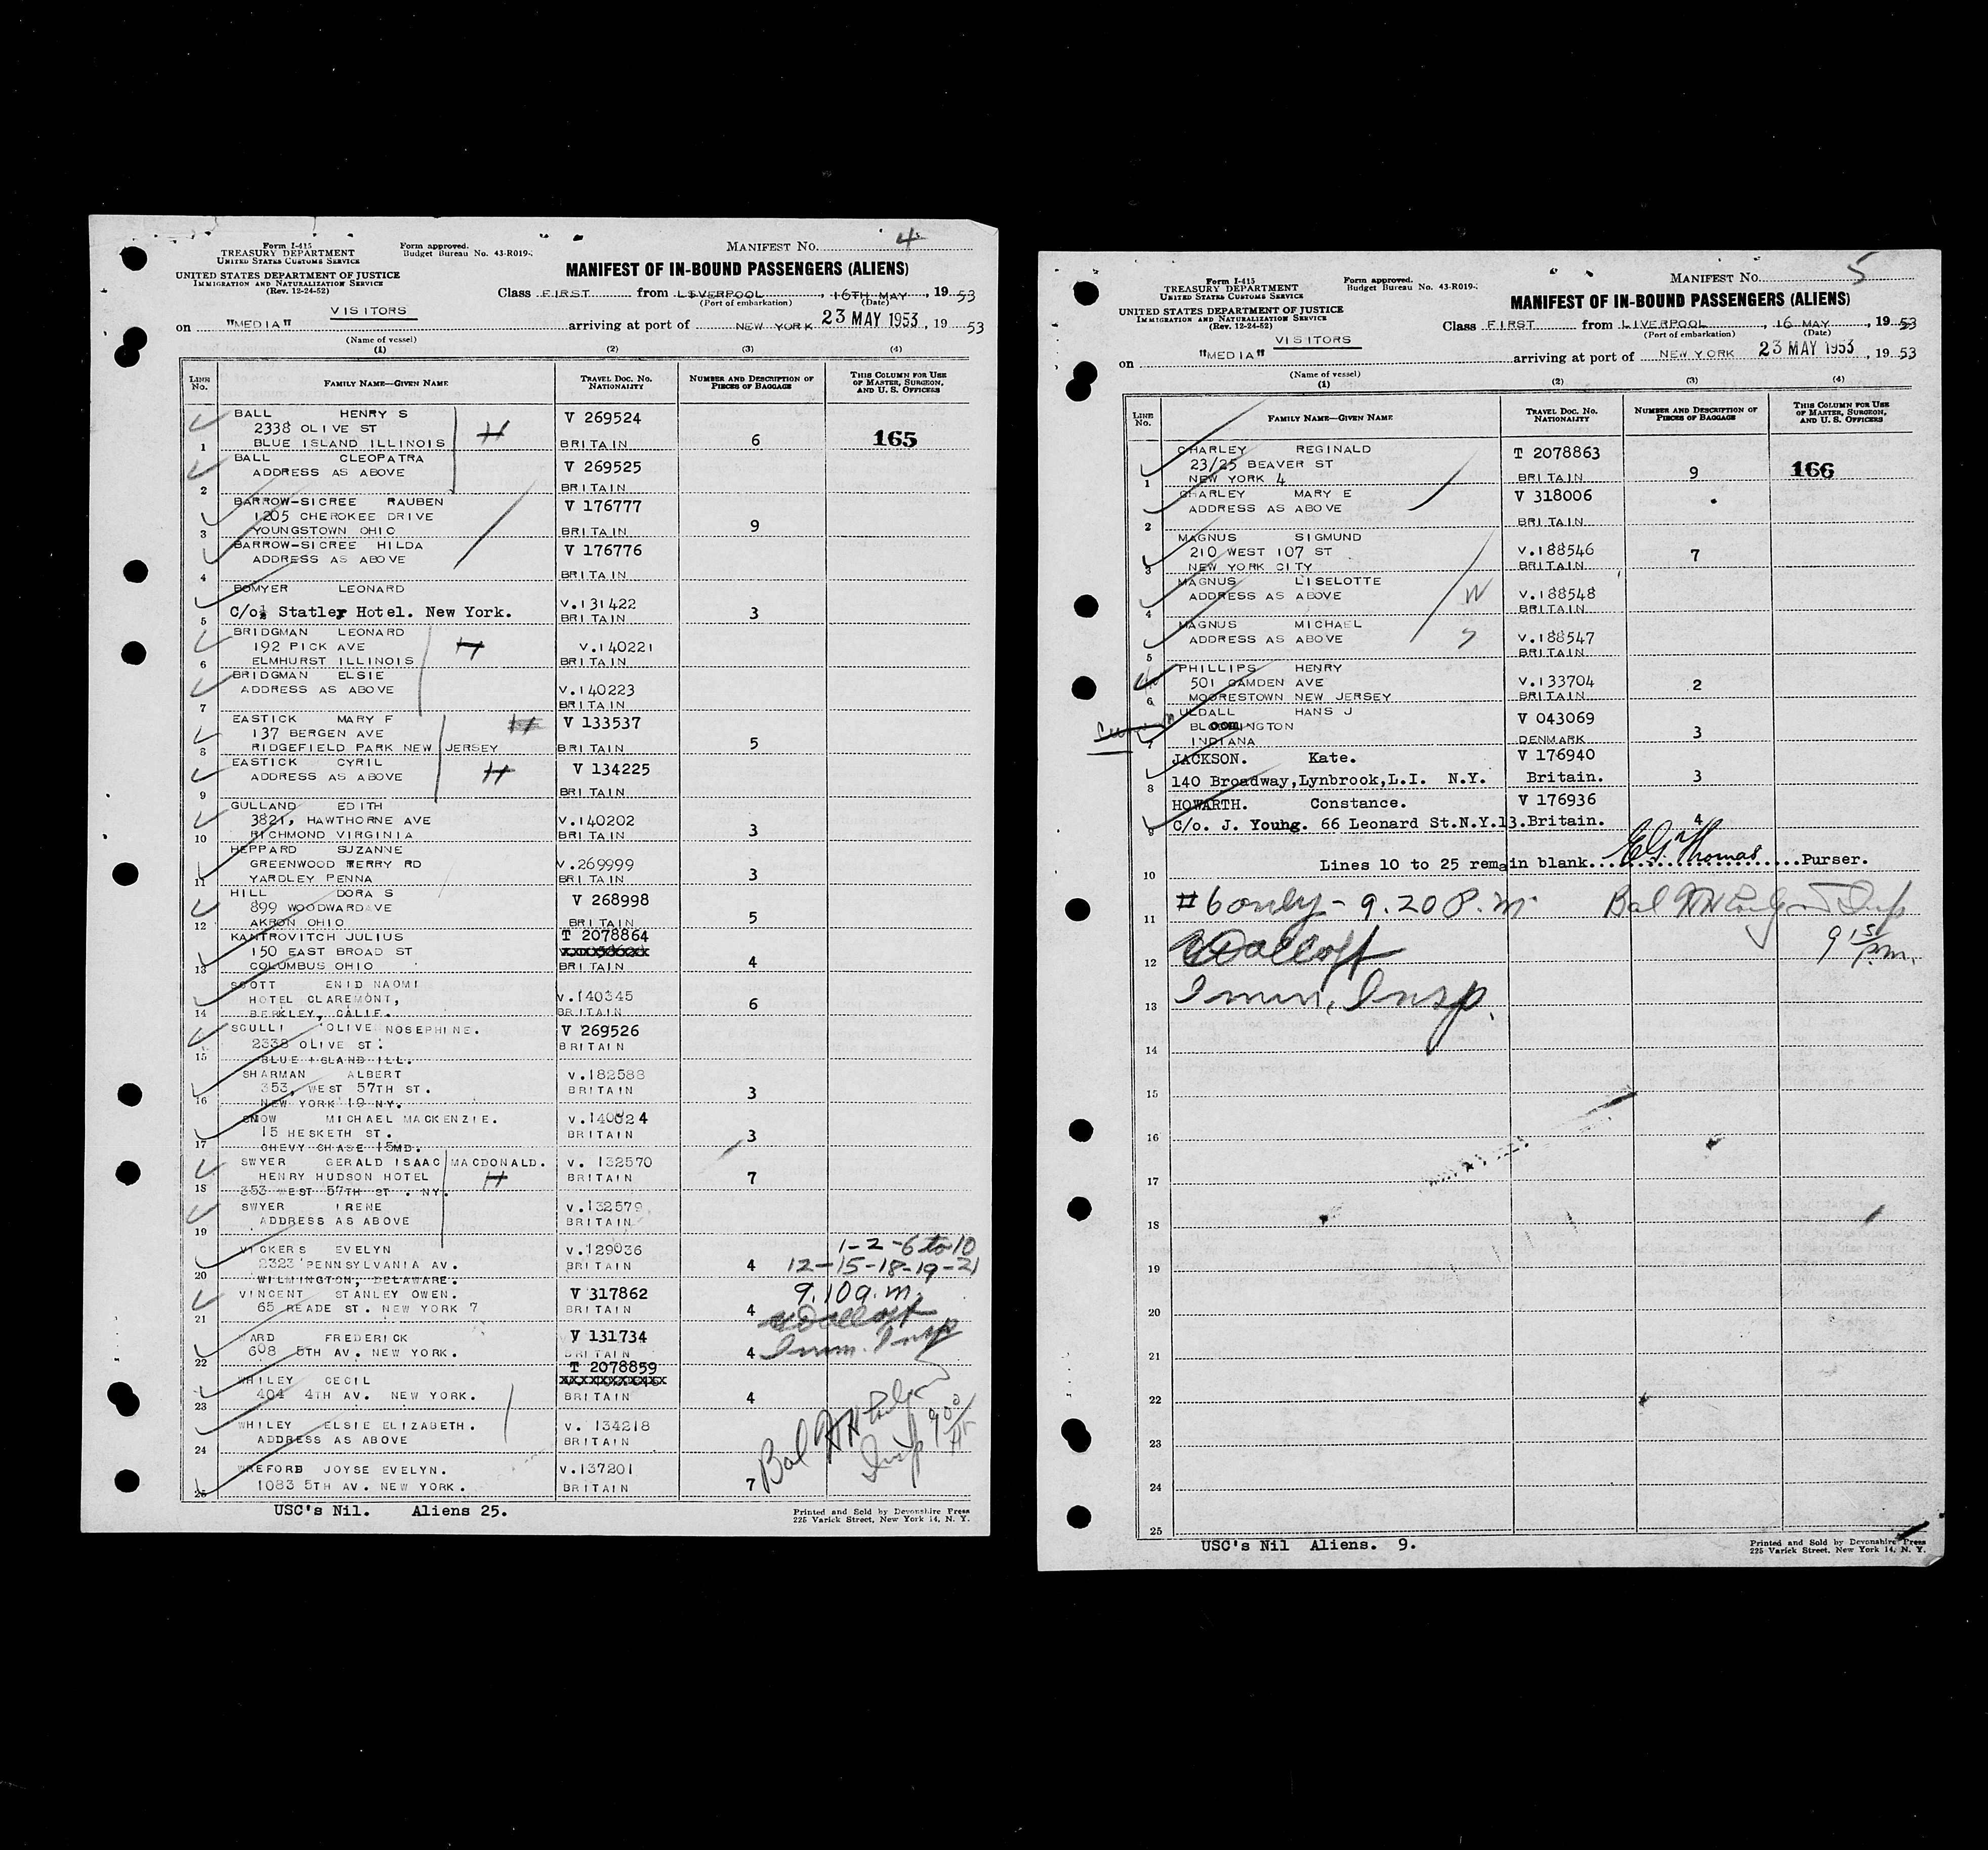 Form I-415
TREASURY DEPARTMENT
UNITED STATES CUSTOMS SERVICE
UNITED STATES DEPARTMENT OF JUSTICE
IMMIGRATION AND NATURALIZATION SERVICE
(Rev. 12-24-52)
Form approved.
Budget Bureau No. 43-R019-
MANIFEST No. 4
MANIFEST OF IN-BOUND PASSENGERS (ALIENS)
Class FIRST from LIVERPOOL, 16TH MAY, 1953
(Port of embarkation) (Date)
VISITORS
on "MEDIA" arriving at port of NEW YORK 23 MAY 1953, 19 53
(Name of vessel)
(1) (2) (3) (4)
LINE No. FAMILY NAME—GIVEN NAME TRAVEL DOC. No. NATIONALITY NUMBER AND DESCRIPTION OF PIECES OF BAGGAGE THIS COLUMN FOR USE OF MASTER, SURGEON, AND U. S. OFFICERS
BALL HENRY S V 269524
2338 OLIVE ST
1 BLUE ISLAND ILLINOIS H BRITAIN 6 165
BALL CLEOPATRA V 269525
ADDRESS AS ABOVE
2 BRITAIN
BARROW-SICREE RAUBEN V 176777
1205 CHEROKEE DRIVE
3 YOUNGSTOWN OHIO BRITAIN 9
BARROW-SICREE HILDA V 176776
ADDRESS AS ABOVE
4 BRITAIN
BOMYER LEONARD
V.131422
5 C/o Statler Hotel. New York. BRITAIN 3
BRIDGMAN LEONARD
192 PICK AVE H V.140221
6 ELMHURST ILLINOIS BRITAIN
BRIDGMAN ELSIE
ADDRESS AS ABOVE V.140223
7 BRITAIN
EASTICK MARY F V 133537
137 BERGEN AVE
8 RIDGEFIELD PARK NEW JERSEY BRITAIN 5
EASTICK CYRIL V 134225
ADDRESS AS ABOVE H
9 BRITAIN
GULLAND EDITH
3821, HAWTHORNE AVE V.140202
10 RICHMOND VIRGINIA BRITAIN 3
HEPPARD SUZANNE
GREENWOOD MERRY RD V.269999
11 YARDLEY PENNA BRITAIN 3
HILL DORA S V 268998
899 WOODWARDAVE
12 AKRON OHIO BRITAIN 5
KANTROVITCH JULIUS T 2078864
150 EAST BROAD ST
13 COLUMBUS OHIO BRITAIN 4
SCOTT ENID NAOMI
HOTEL CLAREMONT, V.140345
14 BERKLEY, CALIF. BRITAIN 6
SCULLI OLIVE NOSEPHINE. V 269526
2338 OLIVE ST. BRITAIN
15 BLUE ISLAND ILL.
SHARMAN ALBERT V.182588
353, WEST 57TH ST. BRITAIN 3
16 NEW YORK 19 NY.
SNOW MICHAEL MACKENZIE. V.140024
15 HESKETH ST. BRITAIN 3
17 CHEVY CHASE 15MD.
SWYER GERALD ISAAC MACDONALD. V. 132570
HENRY HUDSON HOTEL H BRITAIN 7
18 353 WEST 57TH ST . NY.
SWYER IRENE V.132579
ADDRESS AS ABOVE BRITAIN
19
VICKERS EVELYN V.129036 1-2-6 to 10
2323 PENNSYLVANIA AV. BRITAIN 4 12-15-18-19-21
20 WILMINGTON, DELAWARE.
VINCENT STANLEY OWEN. V 317862 9.10 a.m.
65 READE ST. NEW YORK 7 BRITAIN 4
21
WARD FREDERICK V 131734
608 5TH AV. NEW YORK. BRITAIN 4 Imm. Insp
22
WHILEY CECIL T 2078859
404 4TH AV. NEW YORK. BRITAIN 4
23
WHILEY ELSIE ELIZABETH. V. 134218
ADDRESS AS ABOVE BRITAIN
24
WREFORD JOYSE EVELYN. V.137201
25 1083 5TH AV. NEW YORK. BRITAIN 7
Bal Insp 9 00
USC's Nil. Aliens 25.
Printed and Sold by Devonshire Press
225 Varick Street, New York 14, N. Y.
Form I-415
TREASURY DEPARTMENT
UNITED STATES CUSTOMS SERVICE
UNITED STATES DEPARTMENT OF JUSTICE
IMMIGRATION AND NATURALIZATION SERVICE
(Rev. 12-24-52)
Form approved.
Budget Bureau No. 43-R019-
MANIFEST No. 5
MANIFEST OF IN-BOUND PASSENGERS (ALIENS)
Class FIRST from LIVERPOOL, 16 MAY, 1953
(Port of embarkation) (Date)
VISITORS
on "MEDIA" arriving at port of NEW YORK 23 MAY 1953, 19 53
(Name of vessel)
(1) (2) (3) (4)
LINE No. FAMILY NAME—GIVEN NAME TRAVEL DOC. No. NATIONALITY NUMBER AND DESCRIPTION OF PIECES OF BAGGAGE THIS COLUMN FOR USE OF MASTER, SURGEON, AND U. S. OFFICERS
CHARLEY REGINALD T 2078863
23/25 BEAVER ST
1 NEW YORK 4 BRITAIN 9 166
CHARLEY MARY E V 318006
ADDRESS AS ABOVE
2 BRITAIN
MAGNUS SIGMUND
210 WEST 107 ST V.188546 7
3 NEW YORK CITY BRITAIN
MAGNUS LISELOTTE
ADDRESS AS ABOVE W V.188548
4 BRITAIN
MAGNUS MICHAEL
ADDRESS AS ABOVE S V.188547
5 BRITAIN
PHILLIPS HENRY
501 CAMDEN AVE V.133704 2
6 MOORESTOWN NEW JERSEY BRITAIN
ULDALL HANS J V 043069
BLOOMINGTON
7 INDIANA DENMARK 3
JACKSON. Kate. V 176940
8 140 Broadway,Lynbrook,L.I. N.Y. Britain. 3
HOWARTH. Constance. V 176936
9 C/o. J. Young. 66 Leonard St.N.Y.13. Britain. 4
Lines 10 to 25 remain blank. E G Thomas Purser.
10
11 #6 only - 9.20 P.m. Bal Insp
9 15 p.m.
12
13 Imm. Insp.
14
15
16
17
18
19
20
21
22
23
24
25
USC's Nil Aliens. 9.
Printed and Sold by Devonshire Press
225 Varick Street, New York 14, N. Y.